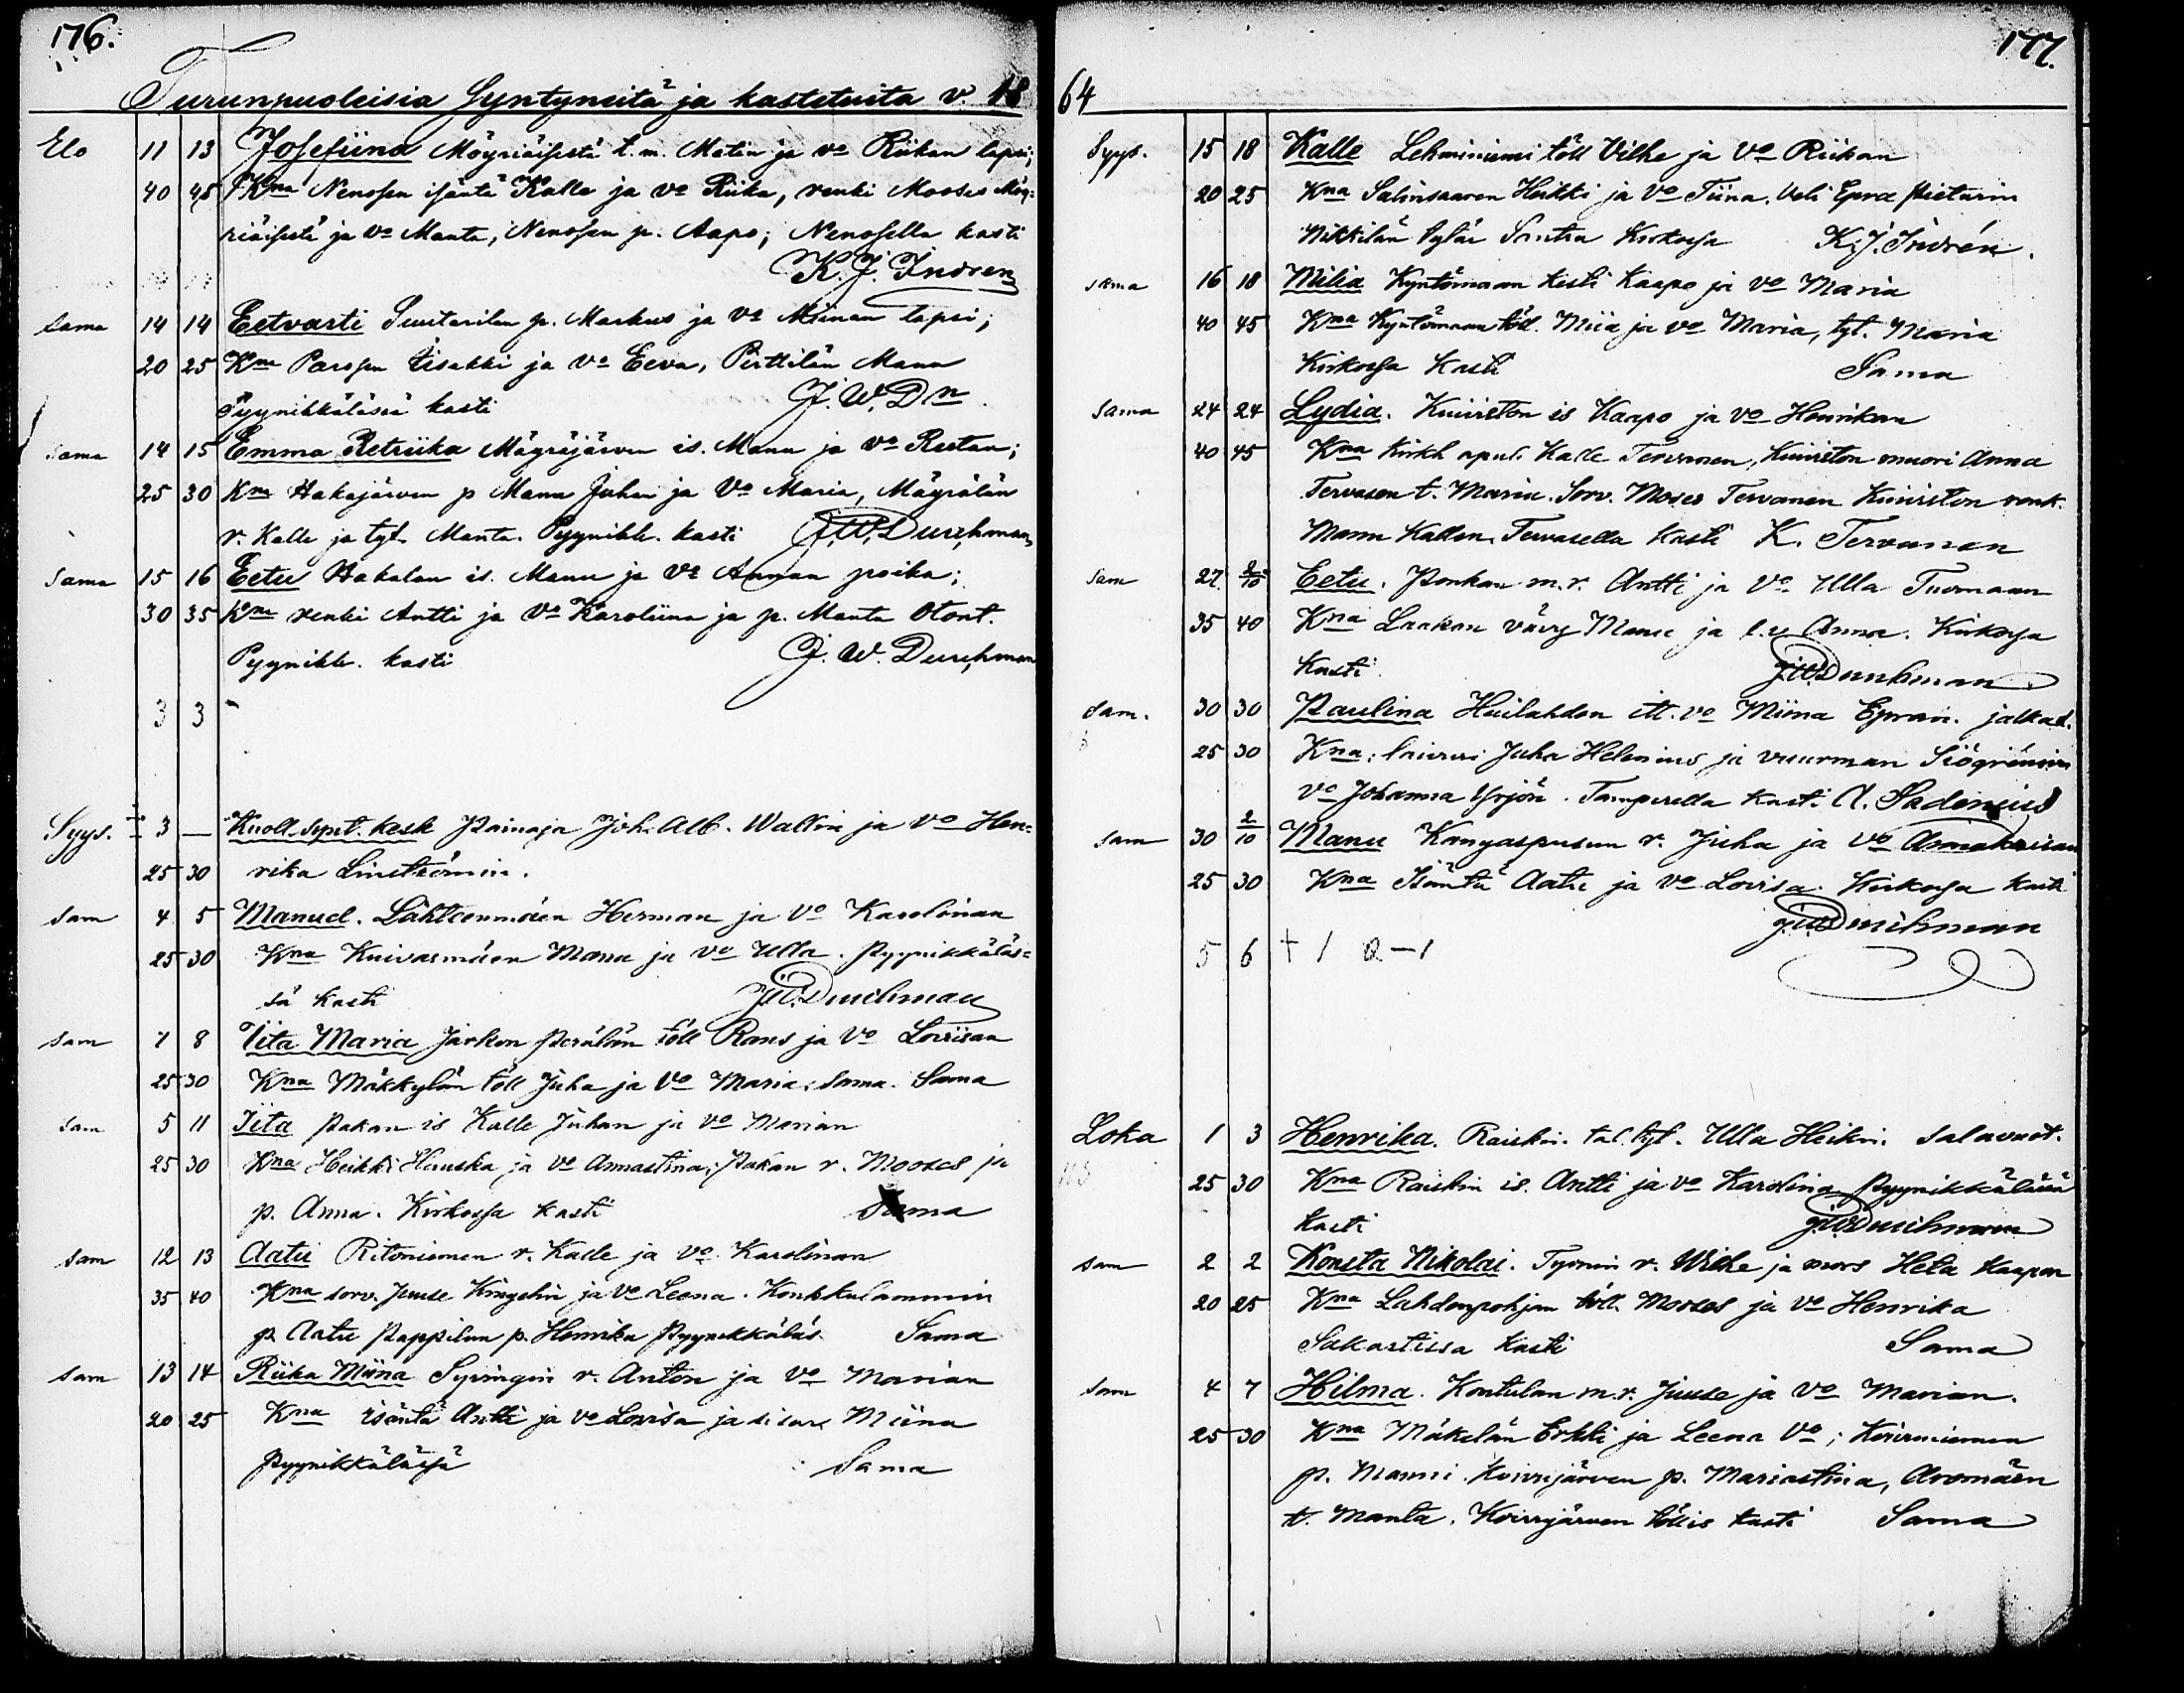 176.
Turunpuoleisia Syntyneitä ja kastetuita v. 18
Elo 11 13 Josefiina Mögriäisestä t. m. Matin ja vo Riikan lapsi;
40 45 Kna Nenosen isäntä Kalle ja vo Riika, renki Mooses Mög-
riäisestä ja vo Manta, Nenosen p. Aapo; Nenosella kasti
K. J. Indren
Sama 14 14 Eetvarti Suutarilan p. Markus ja vo Miinan lapsi;
20 25 Kna Parosen Iisakki ja vo Eeva, Pirttilän Manu
Pyynikkälässä kasti J. W. Dn
Sama 14 15 Emma Retriika Mägräjärven is. Manu ja vo Reetan;
25 30 Kna Hakajärven p Manu Juhan ja Vo Maria, Mägrälän
r. Kalle ja tyt. Manta. Pyynikk. kasti J. W. Durchman
Sama 15 16 Eetu Hakalan is. Manu ja Vo Annan poika;
30 35 Kna renki Antti ja Vo Karoliina ja p. Manta Otont.
Pyynikk. kasti J. W. Durchman
3 3
Syys. 3 — Kuoll. synt. kesk Painaja Joh. Alb. Wallin ja vo Hen-
25 30 rika Linströmin.
Sam 4 5 Manuel. Lähteenmäen Herman ja Vo Karolinan
25 30 Kna Kuivasmäen Manu ja vo Ulla. Pyynikkäläs-
sä kasti J. W. Durchman
Sam 7 8 Iita Maria Järken Perälän töll Rans ja Vo Loviisan
25 30 Kna Mäkkylän töll Juha ja Vo Maria. Sama. Sama
Sam 5 11 Iita Pakan is Kalle Juhan ja vo Marian
25 30 Kna Heikki Hauska ja vo Annastina; Pakan r. Mooses ja
p. Anna. Kirkossa kasti Sama
Sam 12 13 Aatu Ritoniemen r. Kalle ja Vo Karolinan
35 40 Kna sorv. Juuse Kingelin ja Vo Leena. Konkkulammin
p. Aatu Pappilan p. Henrika Pyynikkäläs Sama
Sam 13 14 Riika Miina Syringin r. Anton ja Vo Marian
20 25 Kna isäntä Antti ja vo Lovisa ja sisare Miina
Pyynikkälässä Sama
177.
64
Syys. 15 18 Kalle Lehminiemi töll Vilhe ja Vo Riikan
20 25 Kna Salinsaaren Heikki ja Vo Tiina. Veli Epra Pieturin
Nikkilän tytär Santra Kirkossa K. J. Indrén.
sama 16 18 Milia Kyntömaan kesti Kaapo ja vo Maria
40 45 Kna Kyntömaan töll. Miia ja vo Maria, tyt. Maria
Kirkossa kasti Sama
Sama 24 24 Lydia. Kuiriston is Kaapo ja vo Henrikan
40 45 Kna Kirkh apul. Kalle Tervanen, Kuiriston muori Anna
Tervasen t. Maria. Sorv. Moses Tervanen Kuiriston renk.
Manu Kallen. Tervasella kasti K. Tervanen
Sam 27 2/10 Eetu. Penkan m.r. Antti ja Vo. Ulla Tuomaan
35 40 Kna Laakan vävy Manu ja Anna. Kirkossa
kasti J. W. Durchman
Sam. 30 30 Paulina Heilahden itt. vo Miina Epran. jalkad.
25 30 Kna: Juha Helenius ja vuurman Siögrénin
vo Johanna Yrjön. Tamperella kasti A. Sadenius
Sam 30 2/10 Manu Kangaspusun r. Juha ja Vo Annakaisan
25 30 Kna Isäntä Aatu ja vo Lovisa. Kirkossa kasti
J. W. Durchman
5 6 + 1
Loka 1 3 Henrika. Raiskin. tal. tyt. Ulla Heikin. salavuot.
25 30 Kna Raiskin is. Antti ja vo Karolina Pyynikkälässä
kasti J. W. Durchman
Sam 2 2 Konsta Nikolai. Tyrnin r. Wilhe ja mors Heta Kaapon
20 25 Kna Lahdenpohjan töll. Mooses ja vo Henrika
Sakartissa kasti Sama
Sam 4 7 Hilma. Kontulan m.r. Juuse ja Vo Marian.
25 30 Kna Mäkelän Erkki ja Leena Vo; Koirniemen
p. Manni. Koirijärven p. Mariastina, Aromäen
t. Manta. Koirijärven töllis kasti Sama